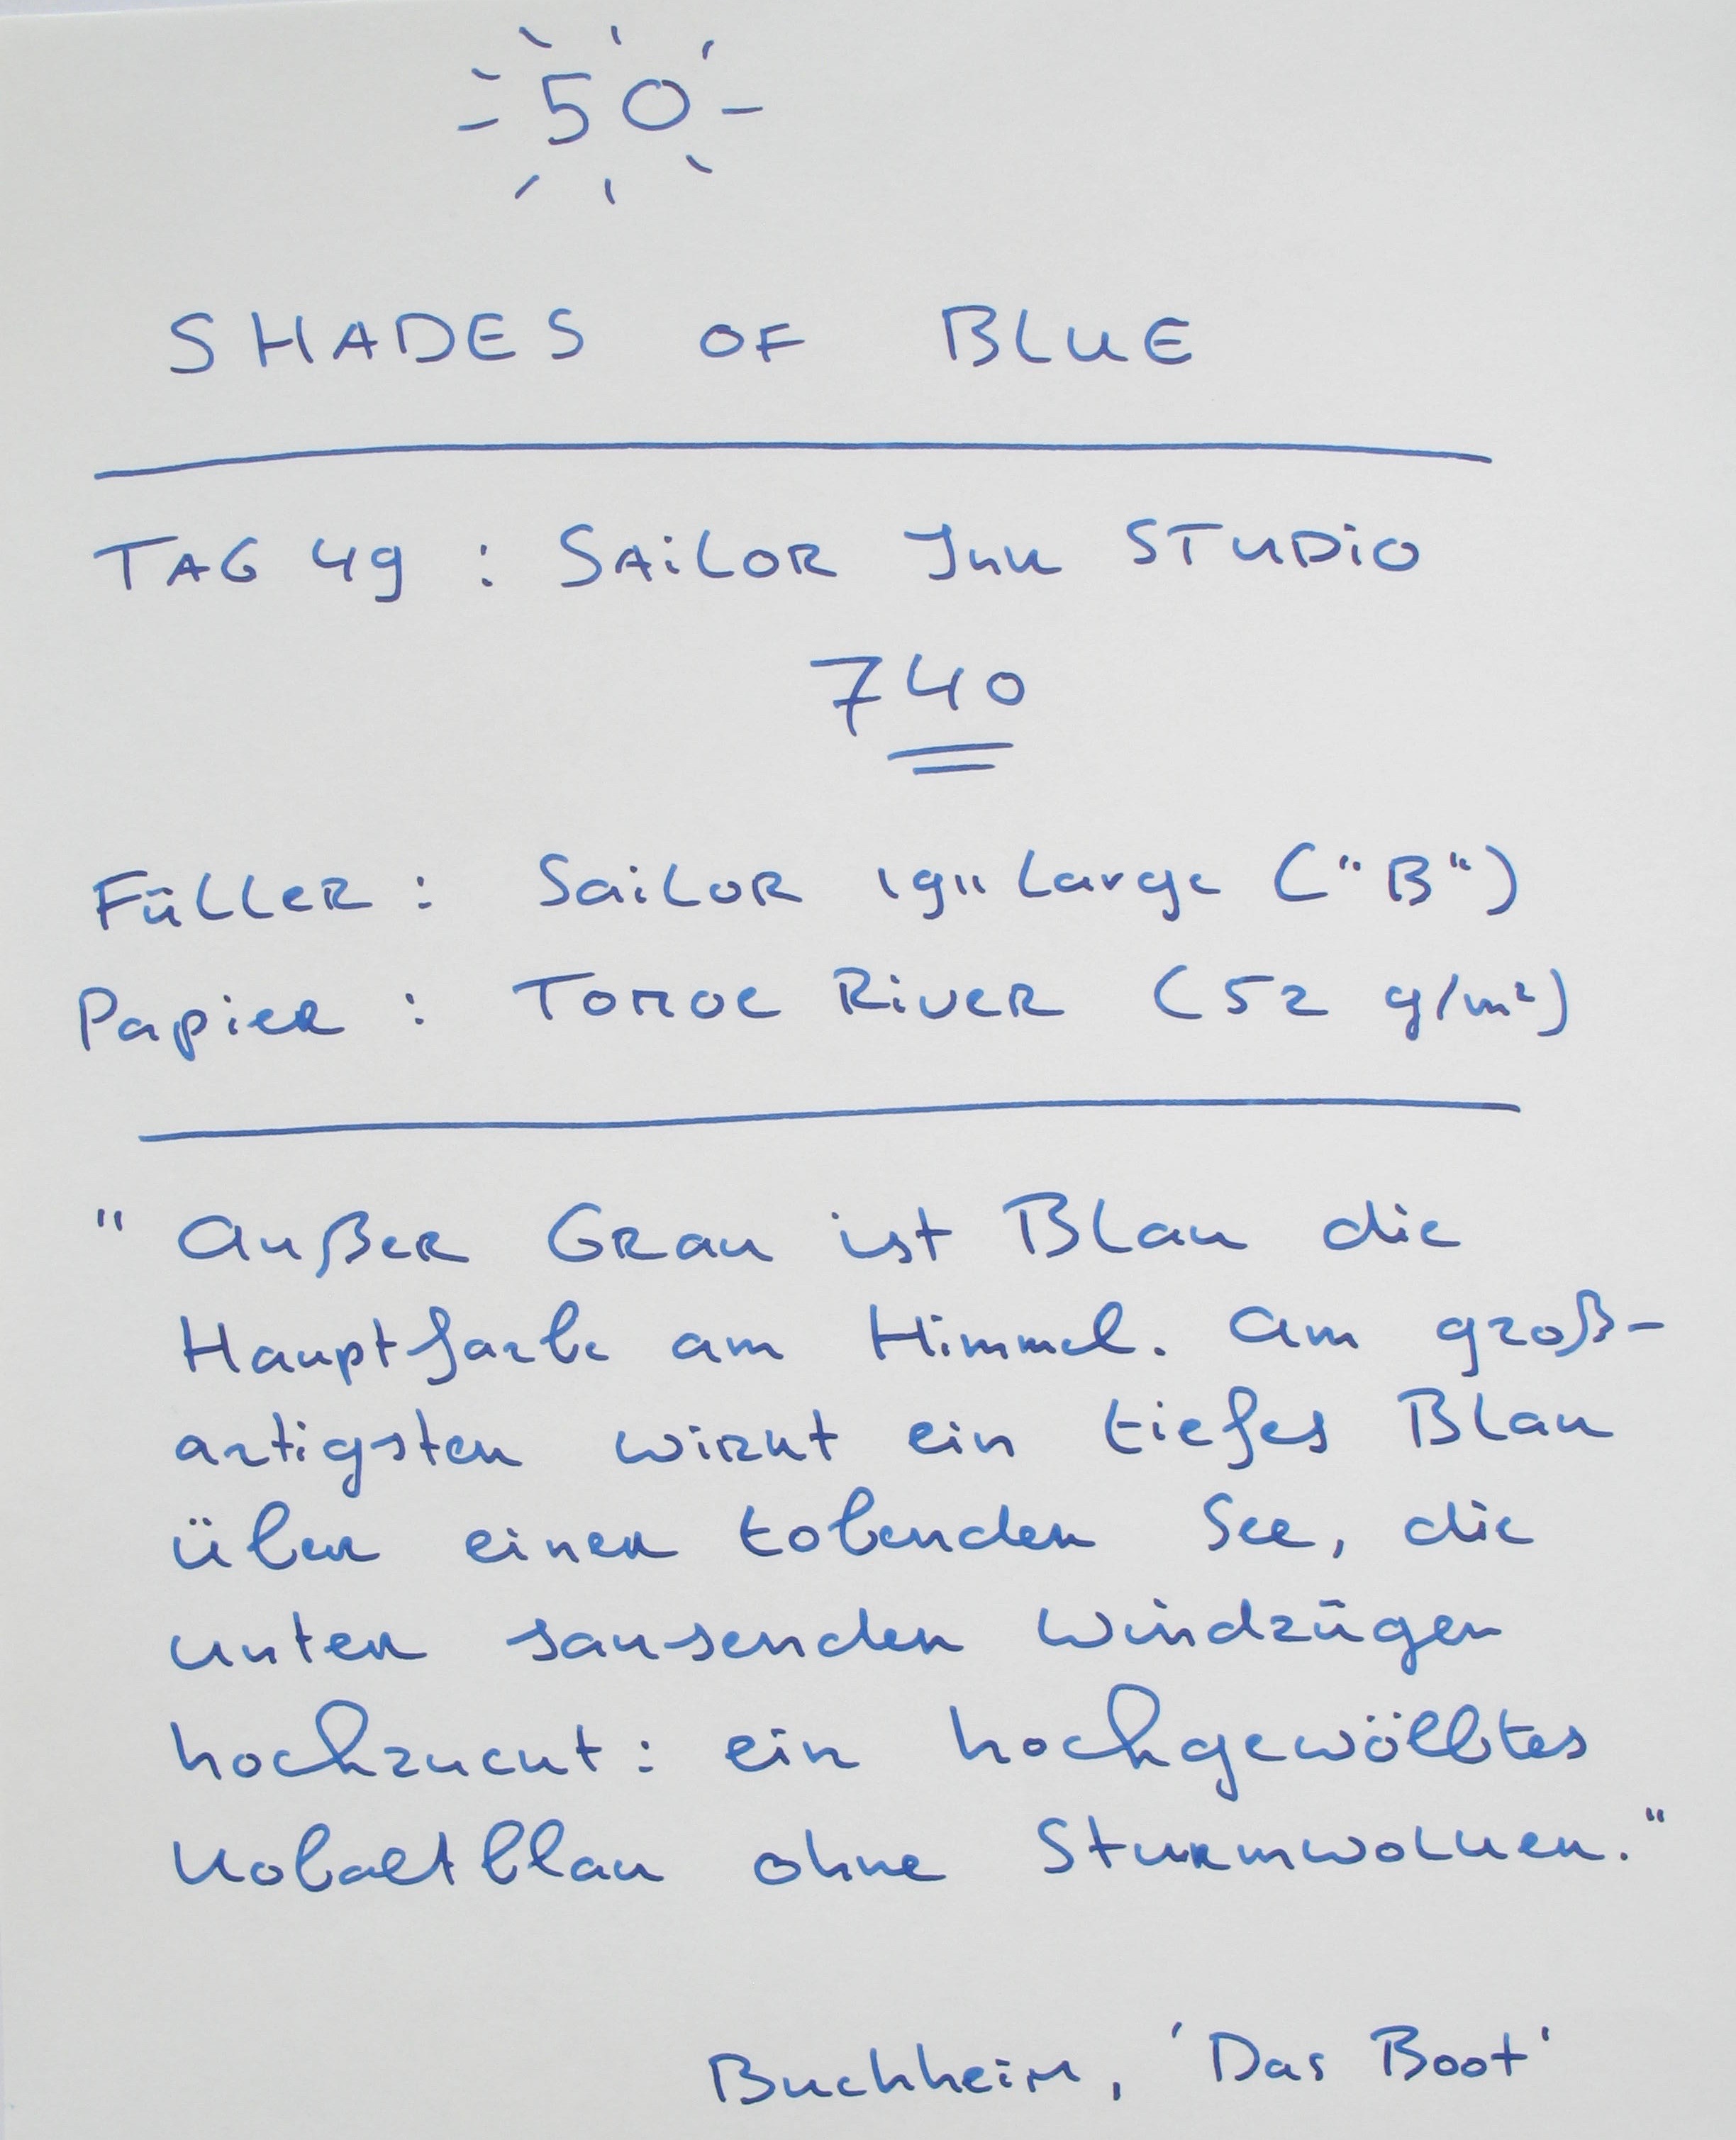 50
SHADES OF BLUE
TAG 49 : SAILOR Ink STUDIO
740
Füller : Sailor 1911 Large ("B")
Papier : Tomoe River (52 g/m²)
" Außer Grau ist Blau die
Hauptfarbe am Himmel. Am groß-
artigsten wirkt ein tiefes Blau
über einer tobenden See, die
unter sausenden Windzügen
hochzuckt: ein hochgewölbtes
Kobaltblau ohne Sturmwolken."
Buchheim, 'Das Boot'